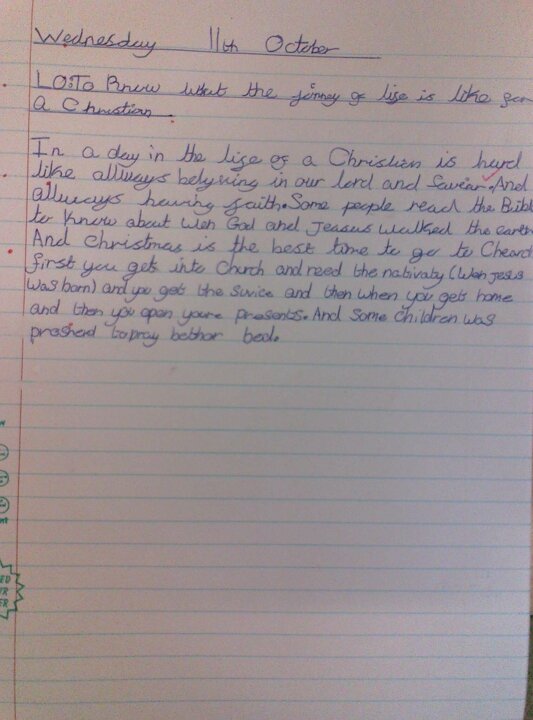 Wednesday 11th October
LO:To Know what the jinney of life is like for
a Christian.
In a day in the life of a Christian is hard
like allways belyiving in our lord and Saviar. And
allways having faith. Some people read the Bibl
ter know about wen God and Jeasus walked the earth
And Christmas is the best time to go to Cheard
first you get into Church and reed the nativaty (Wen Jesus
was born) and you get the survice and then when you gets home
and then you open youre presents. And Some Children was
presherd to pray bethor bed.
ED